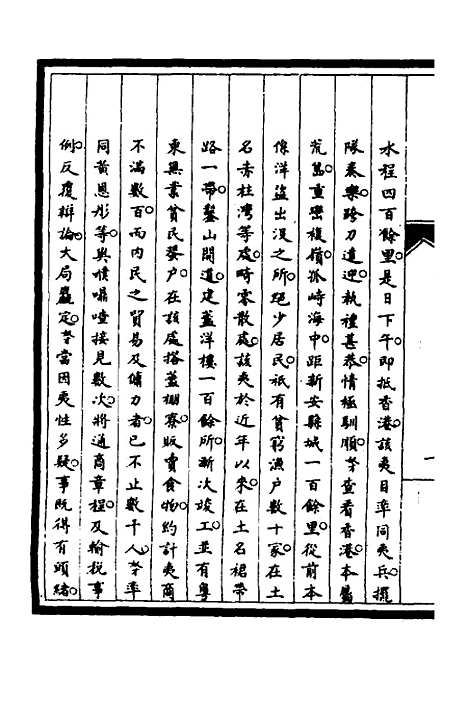 水程四百餘里是日下午即抵香港該夷目率同夷兵擺
隊奏樂跨刀遠迎執禮甚恭情極馴順䇿查看香港本屬
荒島重巒複嶺孤峙海中距新安縣城一百餘里從前本
係洋盜出沒之所絕少居民祇有貧窮漁户數十家在土
名赤柱灣等處畸零散處該夷於近年以來在土名裙帶
路一帶鑿山開道建蓋洋樓一百餘所漸次竣工並有粵
東無業貧民蜑户在該處搭蓋棚寮販賣食物約計夷商
不滿數百而内民之貿易及傭力者已不止數千人䇿率
同黃恩彤等與僕𠾐喳接見數次將通商章程及輸稅事
例反覆辯論大局麤定䇿當因夷性多疑事既得有頭緒